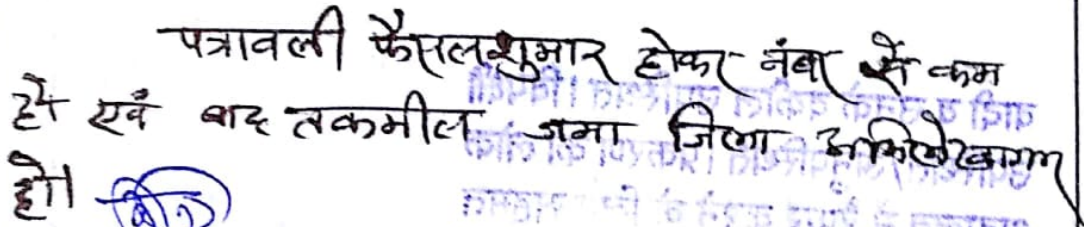 पत्रावली फैसलशुमार होकर नंबर से कम
हो एवं बाद तकमील जमा जिला अभिलेखागार
हो।